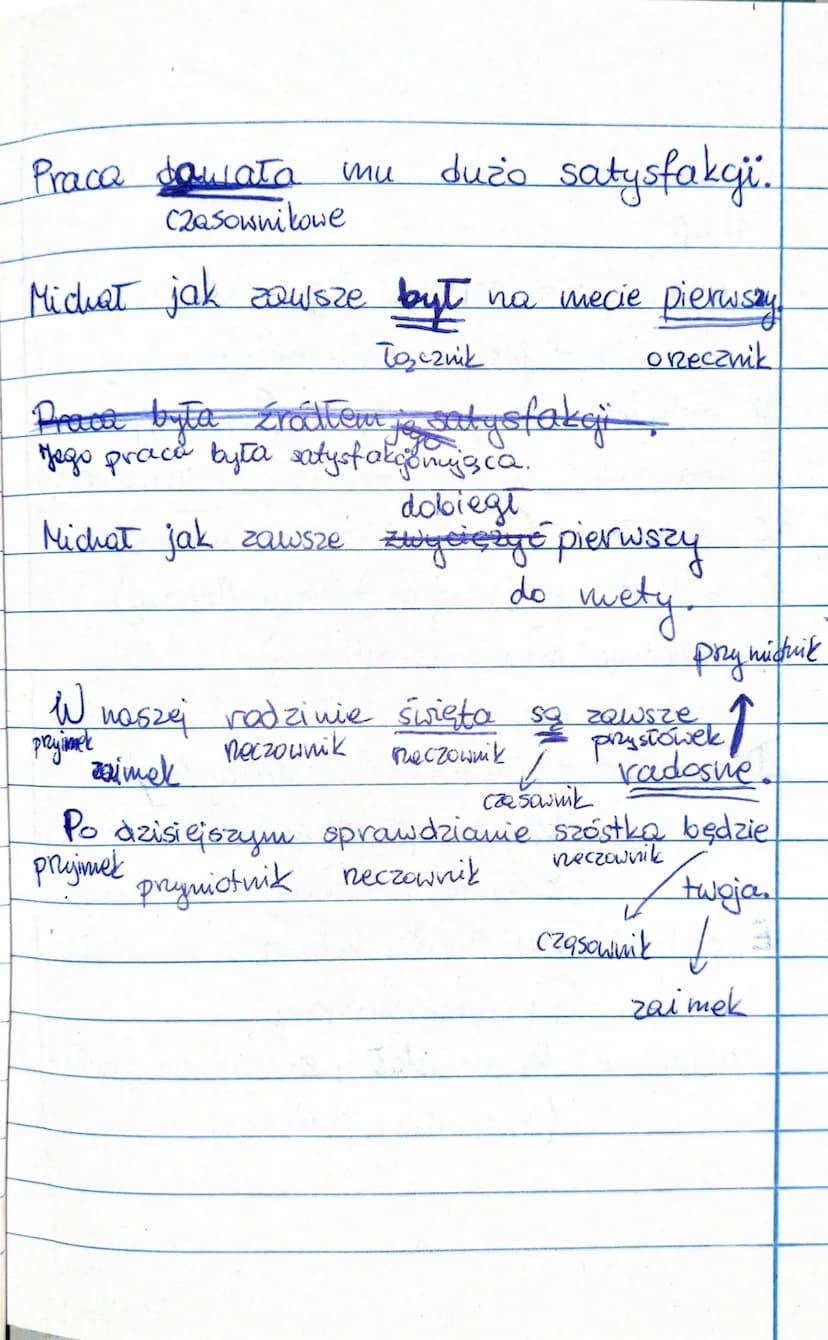 Praca dawała mu dużo satysfakcji.
czasownikowe
Michał jak zawsze był na mecie pierwszy.
łącznik orzecznik
Praca była źródłem jego satysfakcji.
Jego praca była satysfakcjonująca.
dobiegł
Michał jak zawsze zwyciężyć pierwszy
do mety.
przymiotnik
W naszej rodzinie święta są zawsze
przyimek zaimek rzeczownik rzeczownik przysłówek
radosne.
czasownik
Po dzisiejszym sprawdzianie szóstka będzie
przyimek przymiotnik rzeczownik rzeczownik
twoja.
czasownik
zaimek